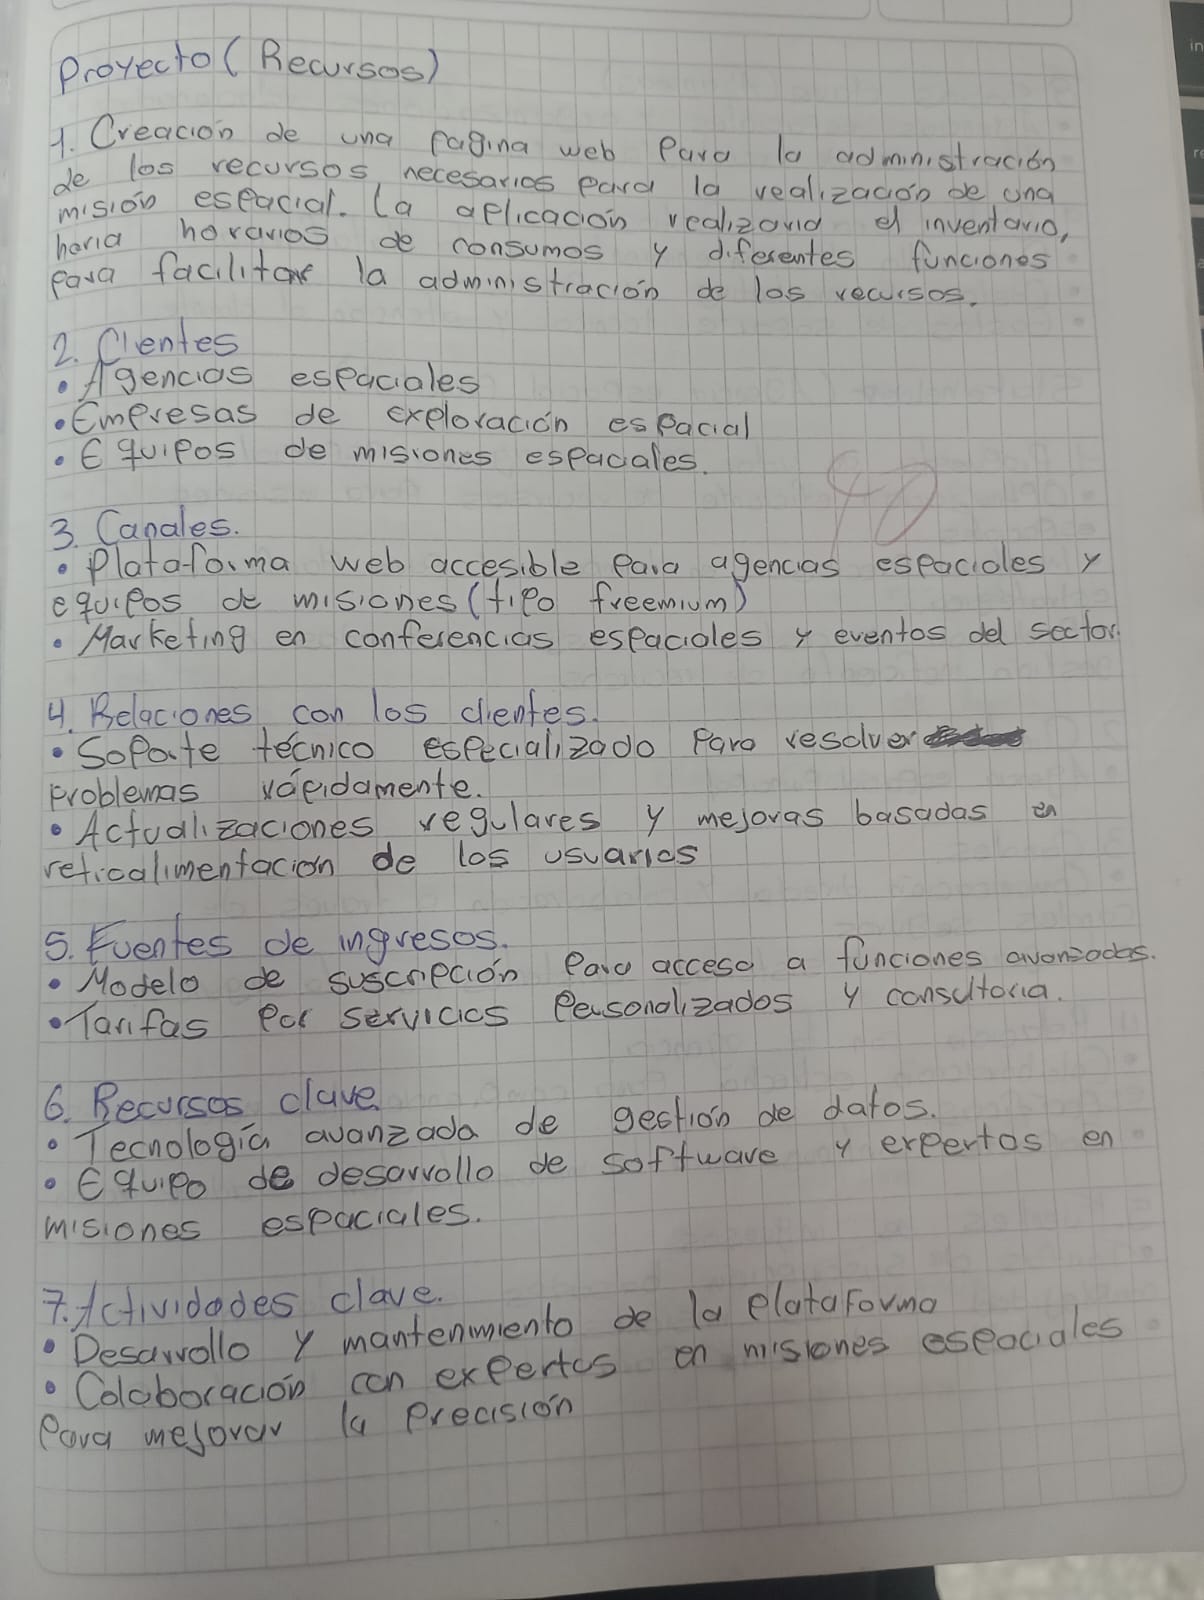 Proyecto (Recursos)
1. Creación de una pagina web Para la administración
de los recursos necesarios para la realización de una
misión espacial. La aplicación realizaria el inventario,
haria horarios de consumos y diferentes funciones
para facilitar la administración de los recursos.
2. Clientes
• Agencias espaciales
• Empresas de exploración espacial
• Equipos de misiones espaciales.
40
3. Canales.
• Plataforma web accesible para agencias espaciales y
equipos de misiones (tipo freemium)
• Marketing en conferencias espaciales y eventos del sector.
4. Relaciones con los clientes.
• Soporte técnico especializado Para resolver
problemas rápidamente.
• Actualizaciones regulares y mejoras basadas en
retroalimentación de los usuarios
5. Fuentes de ingresos.
• Modelo de suscripción Para acceso a funciones avanzadas.
• Tarifas por servicios Personalizados y consultoria.
6. Recursos clave.
• Tecnología avanzada de gestión de datos.
• Equipo de desarrollo de software y expertos en
misiones espaciales.
7. Actividades clave.
• Desarrollo y mantenmiento de la plataforma
• Colaboración con expertos en misiones espaciales
Para mejorar la Precisión
in